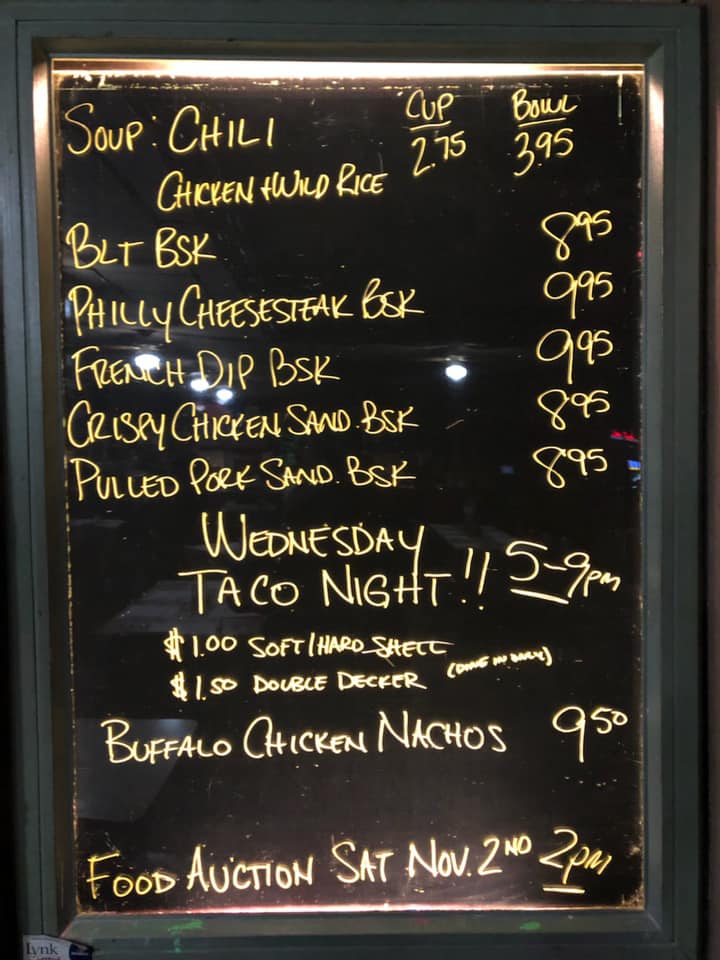 CUP BOWL
SOUP: CHILI 2.75 3.95
CHICKEN + WILD RICE
BLT BSK 8.95
PHILLY CHEESESTEAK BSK 9.95
FRENCH DIP BSK 9.95
CRISPY CHICKEN SAND. BSK 8.95
PULLED PORK SAND. BSK 8.95
WEDNESDAY
TACO NIGHT!! 5-9PM
$1.00 SOFT/HARD SHELL
$1.50 DOUBLE DECKER (DINE IN ONLY)
BUFFALO CHICKEN NACHOS 9.50
FOOD AUCTION SAT NOV. 2ND 2PM
Lynk